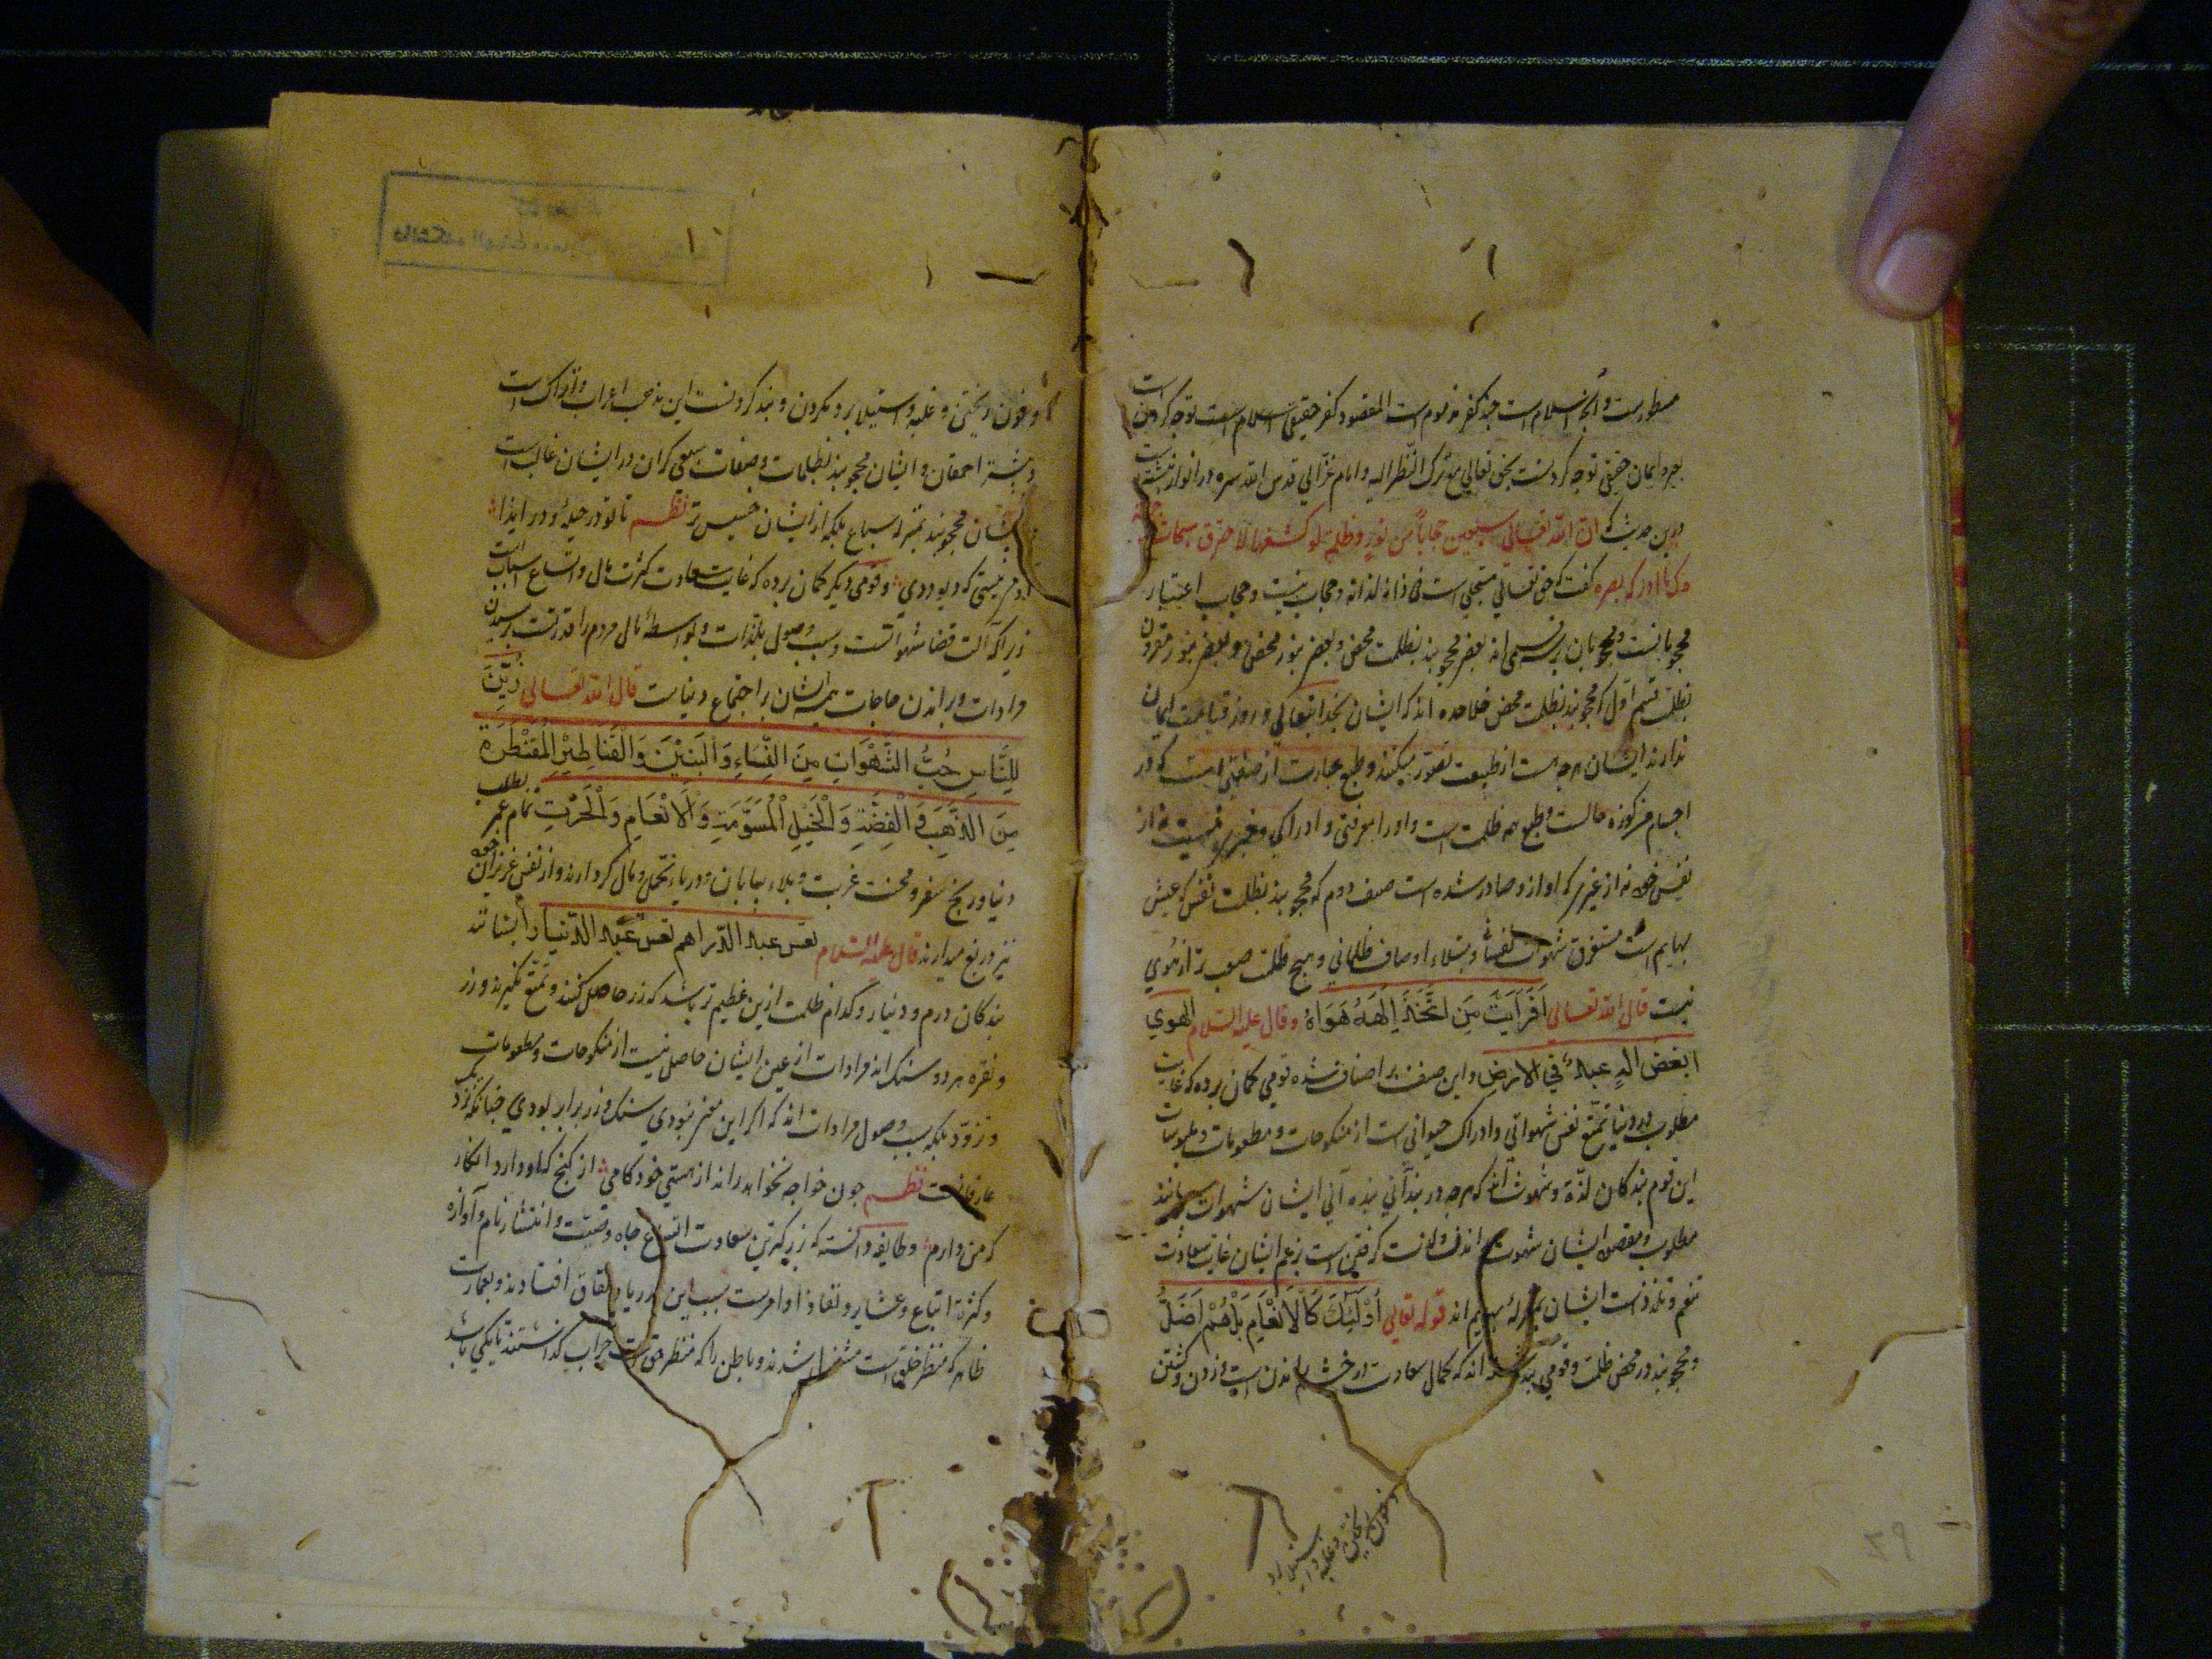 مسطورست و آنجا اسلام است جند کفر مذموم است المقصود کفر حقیقی اسلام است توجه کردن است
بغیر و ایمان حقیقی توجه کردنست بحق تعالی مع ترک النظر الیه و امام غزالی قدس الله سره در انوار نبشته است
درین حدیث که ان الله تعالی سبعین حجابا من نور و ظلمة لو کشفها لاحرق سبحات وجهه
من ادرکه بصره گفت که حق تعالی متجلی است فی ذاته لذاته و حجاب نیست و حجاب اعتبار
محجوبانست و محجوبان بر سه قسم اند بعضی محجوبند بظلمت محض و بعضی بنور محض و بعضی بنور مقرون
بظلمت قسم اول که محجوبند بظلمت محض ملاحده اند که ایشان بخدایتعالی و روز قیامت ایمان
ندارند ایشان هرچه هست از طبیعت تصور میکنند و طبع عبارت از صفتی است که در
اجسام مرکوزه حالست و طبع همه ظلمت است و او را معرفتی و ادراکی و خبری نیست نه از
نفس خود نه از غیری که او از و صادر شده است صنف دوم که محجوبند بظلمت نفس که عیش
بهایم است مستغرق شهوات نفسانی و مبتلاء اوصاف ظلمانی و هیچ ظلمت صعب تر از هوی
نیست قال الله تعالی اَفَرَاَیْتَ مَنِ اتَّخَذَ اِلٰهَهُ هَوَاهُ وقال علیه السلام الهوی
ابغض اله عبد فی الارض و این صنف بر اصناف شده قومی گمان برده که غایت
مطلوب در دنیا تمتع نفس شهوانی و ادراک حیوانی است از منکوحات و مطعومات و ملبوسات
این قوم بندگان لذة و شهوت اند که هرچه در بند آنی بنده آنی ایشان شهوات
مطلوب و مقصود ایشان شهوت اند و لذت گرفتن است بزعم ایشان غایت سعادت
تنعم و تلذذست ایشان بمنزله بهایم اند قوله تعالی اُوْلٰئِكَ كَالْاَنْعَامِ بَلْ هُمْ اَضَلُّ
و محجوبند در محض ظلمت و قومی اند که کمال سعادت در خشم راندن است و زدن و کشتن
و خون ریختن و غلبه و استیلا بر
و خون ریختن و غلبه و استیلا بردیکردن و بند کردنست این مذهب اعراب و اتراک است
و بیشتر احمقان و ایشان محجوبند بظلمات و صفات سبعی که آن در ایشان غالب است
ایشان محجوبند بمنزله سباع بلکه از ایشان خسیس تر نظم تا تو در حیله و در ایذا
آدمی نیستی که دیو و ددی و قومی دیگر گمان برده که غایت سعادت کثرت مال و اتساع اسباب است
زیرا که آلت قضا شهواتست و سبب وصول بلذات و بواسطه مال مردم را قدرتست رسیدن
مرادات و براندن حاجات همه ایشان بر اجتماع دنیاست قال الله تعالی زُیِّنَ
لِلنَّاسِ حُبُّ الشَّهَوَاتِ مِنَ النِّسَاءِ وَالْبَنِیْنَ وَالْقَنَاطِیْرِ الْمُقَنْطَرَةِ
مِنَ الذَّهَبِ وَ الْفِضَّةِ وَ الْخَیْلِ الْمُسَوَّمَةِ وَ الْاَنْعَامِ وَ الْحَرْثِ تمام عمر بطلب
دنیا و رنج سفر و محنت غربت و بلاء بیابان و دریا تحمل و مال گرد آرند و از نفس عزیز آن خود
نیز دریغ میدارند قال علیه السلام تعس عبد الدراهم تعس عبد الدنیار و ایشان
بندگان درم و دنیار و کدام ظلمت ازین عظیم تر باشد که زر حاصل کنند و تمتع نگیرند و زر
و نقره هر دو سنک اند مرادات از عین ایشان حاصل نیست از منکوحات و مطعومات
و زر و د بلکه سبب وصول مرادات اند که اگر این معنی نبودی سنک و زر برابر بودی چنانکه نزد
عارفانست نظم چون خواجه نخواهد راند از هستی خود کامی از گنج که او دارد انکار
که من دارم و طایفه دانسته که بزرگترین سعادت اتساع جاه و صیت و انتشار نام و آوازه
و کثرة اتباع و عشایر و نفاذ اوامرست بسبب این در ریا و نفاق افتادند و بعمارت
ظاهر که منظر خلق است مشغول شدند و باطن را که منظر حق است خراب گذاشتند تا یکی باشد